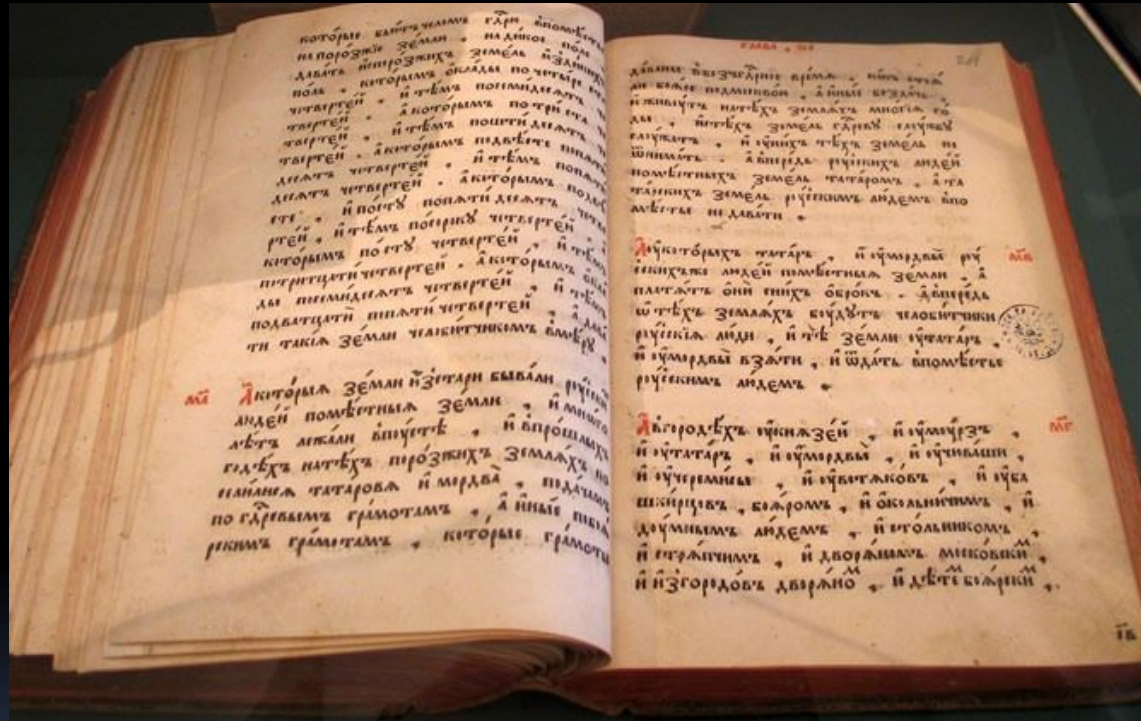 которые бьютъ челомъ гдрю впомѣстье
на порозжїе земли , на дикое поле
давать испорозжихъ земель издикихъ
поль , которымъ оклады по четыре ста
четвертей , и тѣмъ посемидесятъ че
твертей , а которымъ по три ста че
твертей , и тѣмъ пошти десятъ че
твертей . а которымъ подвѣсте попяти
десятъ четвертей , и тѣмъ попяти
десятъ четвертей . а которымъ подвѣ
сте , и по сту попяти десятъ четве
ртей , и тѣмъ посороку четвертей , а
которымъ по сту четвертей , и тѣмъ
потритцати четвертей . а которымъ окла
ды посемидесятъ четвертей , и тѣмъ
подватцати попяти четвертей , а дава
ти такїя земли челобитчикомъ вмѣру .
ма Акоторыя земли изстари бывали рꙋские
людей помѣстныя земли , и много
лѣтъ лежали впꙋстѣ , и впрошлыхъ
годѣхъ натѣхъ порозжихъ земляхъ по
селилися татаровя и мордва , подачамъ
по гдревымъ грамотам , а иные побоя
рскимъ грамотам , которые грамоты
глава , ѕі
201
даваны вбезъгдрное время , какъ стоя
ли бояре подмосквою , а иные бездачь ,
и живꙋтъ натѣхъ земляхъ многїя го
ды , истѣхъ земель гдревꙋ слꙋжбꙋ
слꙋжатъ , и оуних тѣхъ земель не
ѿимать . а впередь рꙋсскихъ людей
помѣстныхъ земель татаромъ , а та
тарскихъ земель рꙋсскимъ людемъ впо
мѣстье не давати .
Аоукоторыхъ татаръ , и оумордвы рꙋ мв
сскихъже людей помѣстныя земли , а
платятъ они сних оброкъ . а впередь
ѡ тѣхъ земляхъ бꙋдꙋтъ челобитчики
рꙋсскїя люди , и тѣ земли оутатаръ ,
и оумордвы взяти , и ѿдать впомѣстье
рꙋсскимъ людемъ .
Авгородѣхъ оукнязей , и оумꙋрзъ , мг
и оутатаръ , и оумордвы , и оучꙋваши ,
и оучеремисы , и оувотяковъ , и оуба
шкирцовъ , бояромъ , и околничимъ , и
дꙋмнымъ людемъ , и столникомъ ,
и стряпчимъ , и дворяномъ московским ,
и изгородовъ дворяном , и дѣтем боярским ,